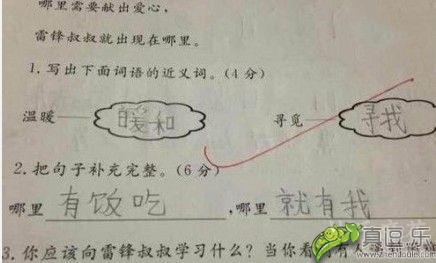 哪里需要献出爱心,
雷锋叔叔就出现在哪里。
1. 写出下面词语的近义词。(4分)
温暖——暖和 寻觅——寻找
2. 把句子补充完整。(6分)
哪里 有饭吃 ,哪里 就有我
3. 你应该向雷锋叔叔学习什么? 当你看
真逗乐
www.zhendoule.com